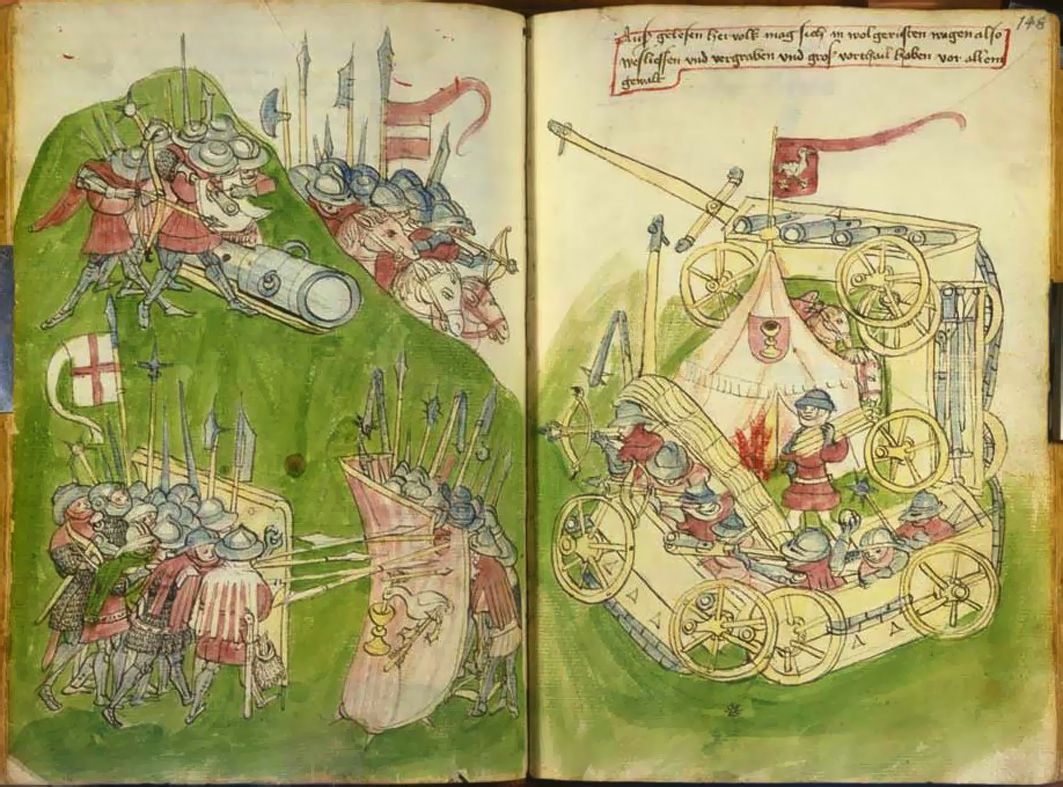 148
Auß gelesen hervolk mag sich in wolgerüsten wagen also
besliessen vnd vergraben vnd groß vorthail haben vor allem
gewalt